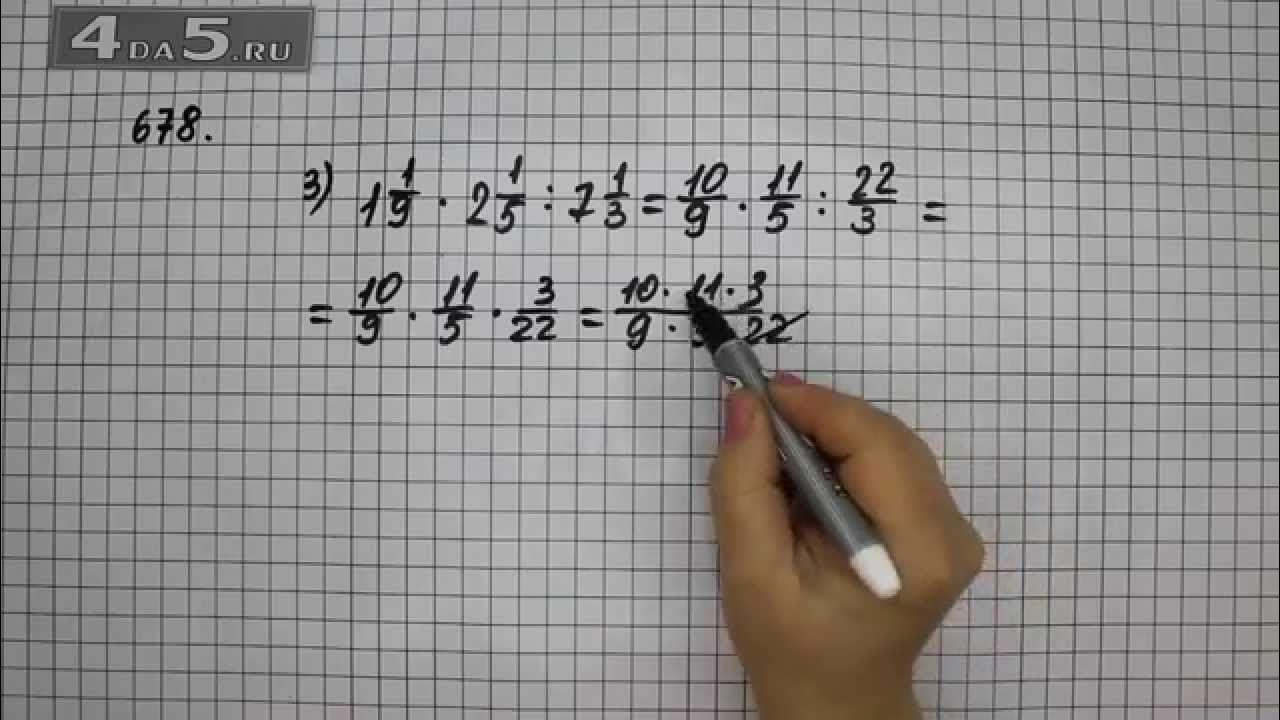 4DA5.RU
678.
3) 1 1/9 · 2 1/5 : 7 1/3 = 10/9 · 11/5 : 22/3 =
= 10/9 · 11/5 · 3/22 = 10 · 11 · 3 / 9 · 22